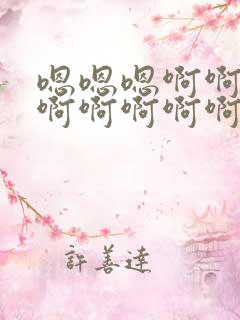 嗯嗯嗯啊啊
啊啊啊啊啊
許善達